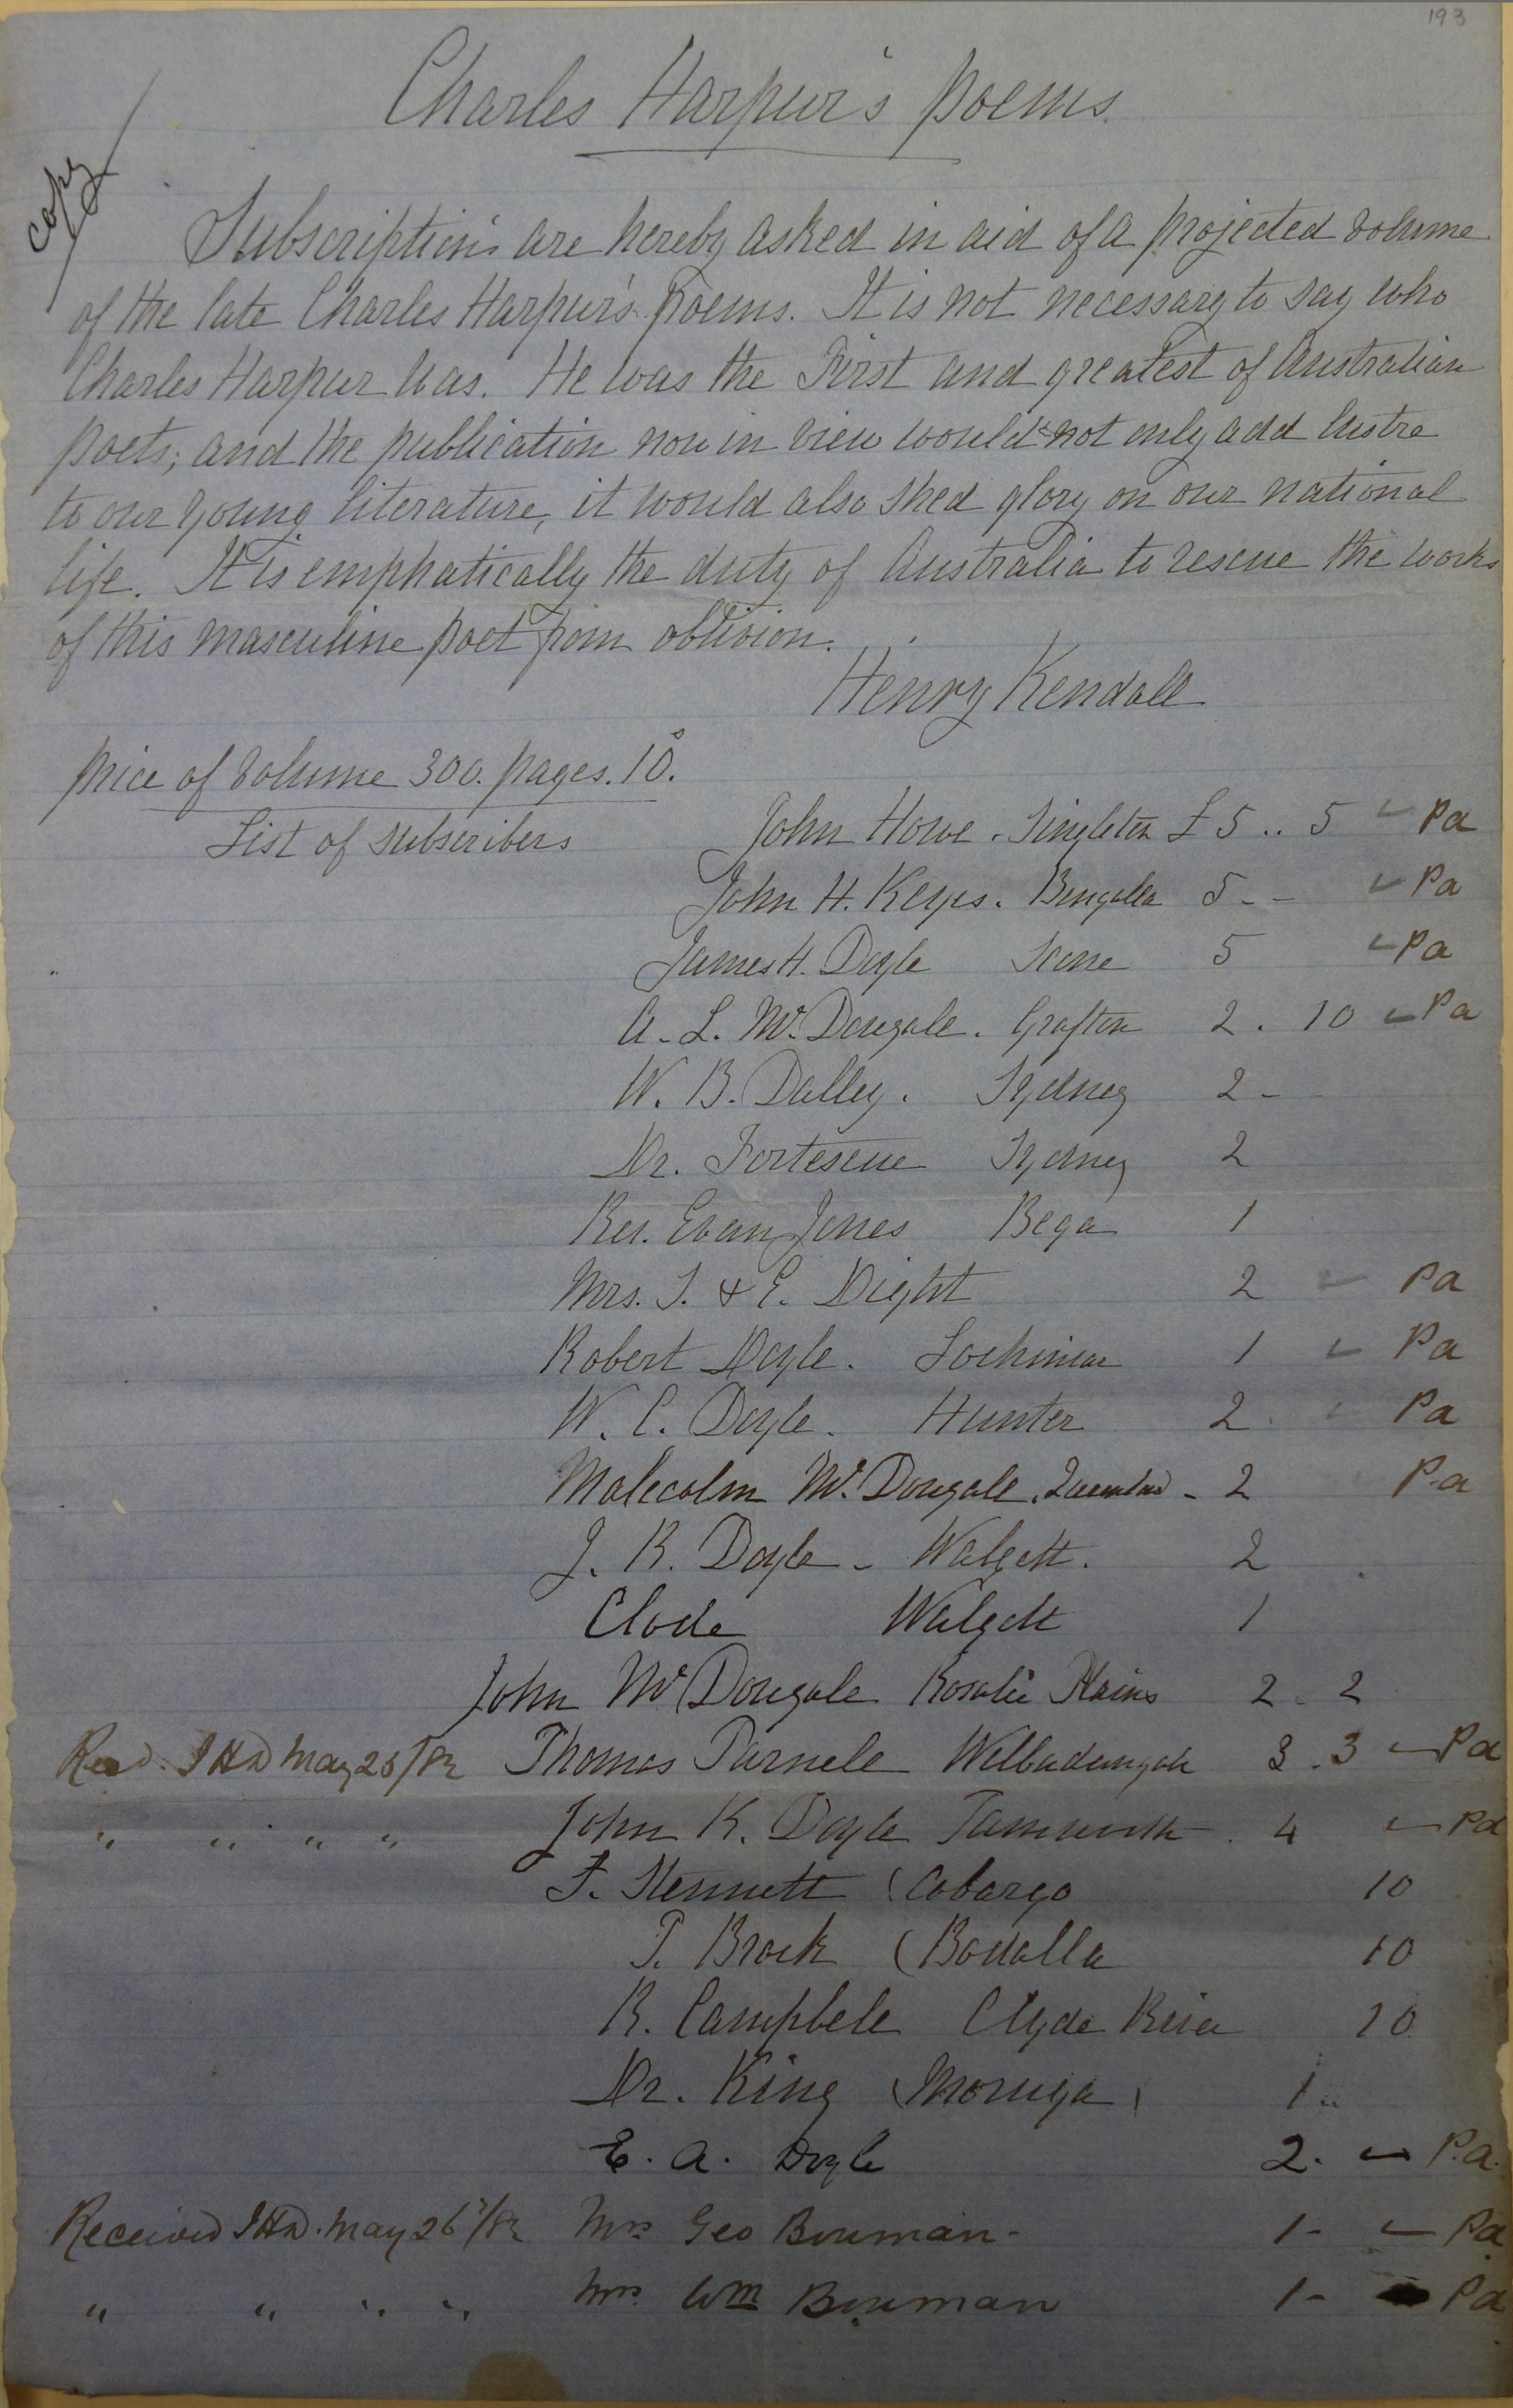 193
Charles Harpur's Poems.
Copy
Subscriptions are hereby asked in aid of a projected volume
of the late Charles Harpur's Poems. It is not necessary to say who
Charles Harpur was. He was the First and greatest of Australian
Poets; and the publication now in view would not only add lustre
to our young literature, it would also shed glory on our national
life. It is emphatically the duty of Australia to rescue the works
of this masculine poet from oblivion.
Henry Kendall
Price of Volume 300. pages. 10s.
List of Subscribers
John Howe. Singleton £5 .. 5 Pa
John H. Keys. Bengalla 5 - - Pa
James H. Doyle Scone 5 Pa
A. L. McDougale. Grafton 2 . 10 Pa
W. B. Dalley. Sydney 2 -
Dr. Fortescue Sydney 2
Rev. Evan Jones Bega 1
Mrs. S. & E. Dight 2 Pa
Robert Doyle. Lochinvar 1 Pa
W. C. Doyle. Hunter 2 Pa
Malecolm McDougale. - 2 Pa
J. R. Doyle - Walgett. 2
Clode Walgett 1
John McDougale Rosalie Plains 2 . 2
Recd. JHD May 23/82 Thomas Parnele 3 . 3 Pd
" " " " John K. Doyle Tamworth . 4 Pd
F. Kennett (Cobargo 10
T. Brock (Bodalla 10
R. Campbele Clyde River 10
Dr. King (Moruya) 1 ..
E. A. Doyle 2. P.a.
Received JHD. May 26/82 Mrs Geo Bowman - 1 - Pa
" " " " Mrs Wm Bowman 1 - Pa